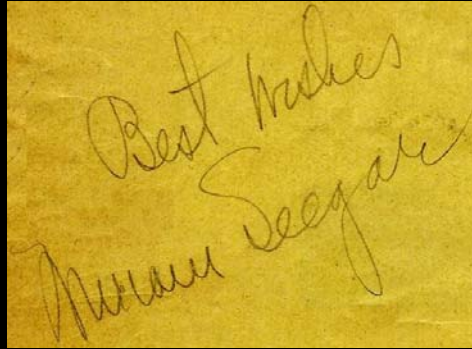 Best Wishes
Miriam Seegar